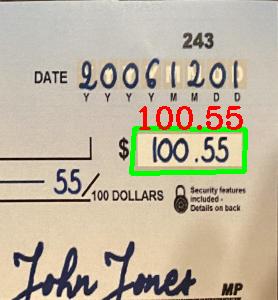 243
DATE 20061201
Y Y Y Y M M D D
100.55
$ 100.55
55/100 DOLLARS
Security features
included -
Details on back
John Jones MP